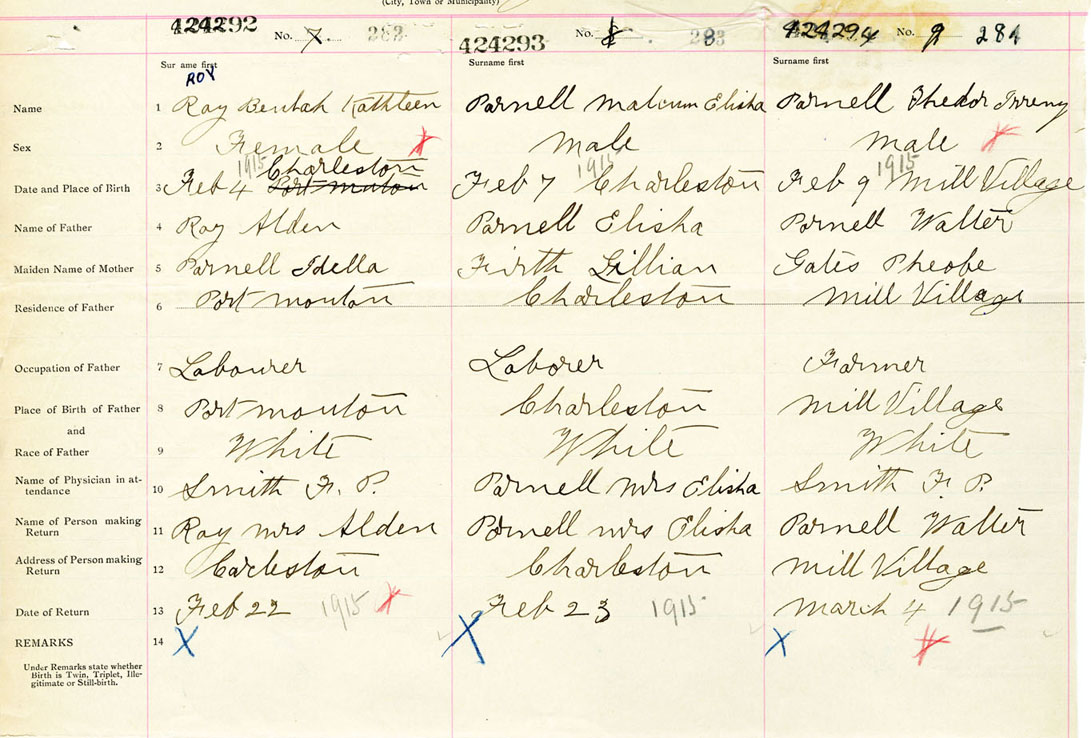 (City, Town or Municipality)
424292 No. 7. 282 424293 No. 8. 283 424294 No. 9 284
Surname first Surname first Surname first
ROY
Name 1 Roy Beulah Kathleen Parnell Malcum Elisha Parnell Irreny
Sex 2 Female Male Male
1915 Charleston 1915 1915
Date and Place of Birth 3 Feb 4 Port Mouton Feb 7 Charleston Feb 9 Mill Village
Name of Father 4 Roy Alden Parnell Elisha Parnell Walter
Maiden Name of Mother 5 Parnell Idella Firth Lillian Gates Pheobe
Residence of Father 6 Port Mouton Charleston Mill Village
Occupation of Father 7 Labourer Laborer Farmer
Place of Birth of Father 8 Port Mouton Charleston Mill Village
and
Race of Father 9 White White White
Name of Physician in at-
tendance 10 Smith F. P. Parnell Mrs Elisha Smith F. P.
Name of Person making
Return 11 Roy Mrs Alden Parnell Mrs Elisha Parnell Walter
Address of Person making
Return 12 Carleston Charleston Mill Village
Date of Return 13 Feb 22 1915 Feb 23 1915 March 4 1915
REMARKS 14 X X X
Under Remarks state whether
Birth is Twin, Triplet, Ille-
gitimate or Still-birth.